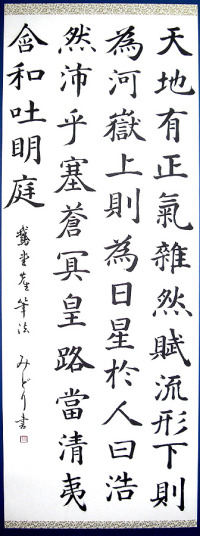 天地有正氣雑然賦流形下則
為河嶽上則為日星於人曰浩
然沛乎塞蒼冥皇路當清夷
含和吐明庭
鵞堂先生筆法
みどり書